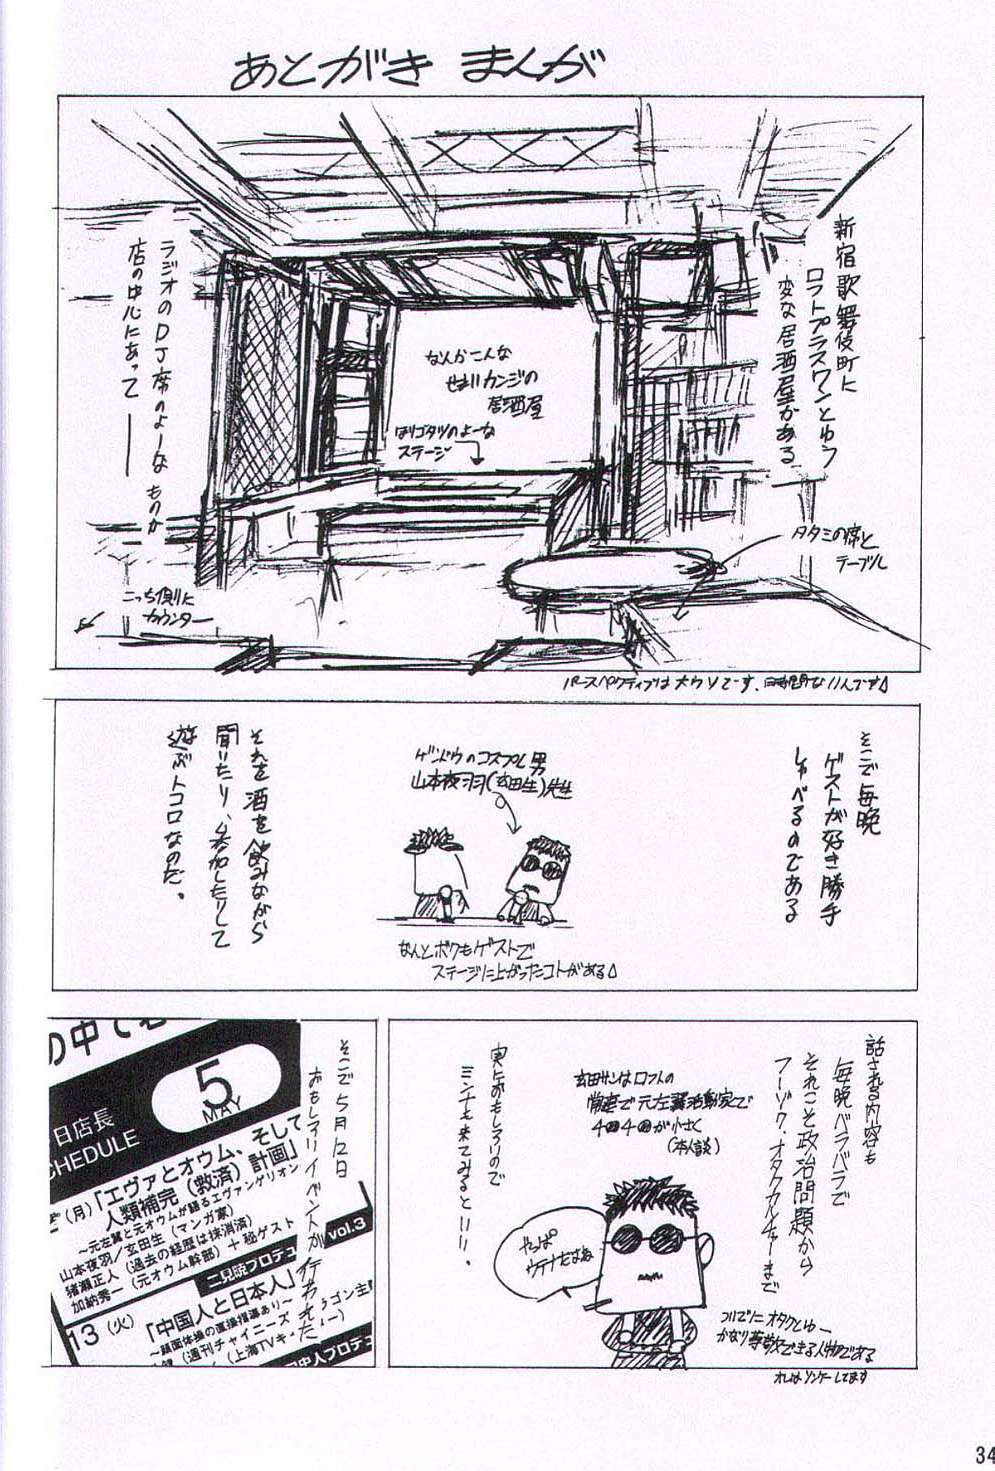 あとがき まんが
新宿歌舞伎町に
ロフトプラスワンとゆう
変な居酒屋がある
なんかこんな
せまいカンジの
居酒屋
ほりゴタツのよーな
ステージ
ラジオのDJ席のよーな ものが
店の中心にあって――
タタミの席と
テーブル
こっち側に
カウンター
パースペクティブは大ウソです、時間ないんです
そこで毎晩
ゲストが好き勝手
しゃべるのである
ゲンドウのコスプレ男
山本夜羽(玄田生)先生
なんとボクもゲストで
ステージに上がったコトがある
それを酒を飲みながら
聞いたり、参加したりして
遊ぶトコロなのだ。
話される内容も
毎晩バラバラで
それこそ政治問題から
フーゾク・オタクカルチャーまで
玄田サンはロフトの
常連で元左翼活動家で
が小さく
(本人談)
実におもしろいので
ミンナも来てみるといい。
やっぱ
ウテナだよね
ついでにオタクとゆー
かなり尊敬できる人物である
オレはソンケーしてます
そこで5月12日
おもしろいイベントが行われた
の中で
5
MAY
日店長
CHEDULE
(月)「エヴァとオウム、そして
人類補完(救済)計画」
~元左翼と元オウムが語るエヴァンゲリオン
山本夜羽/玄田生(マンガ家)
猪瀬正人(過去の経歴は抹消済)
加納秀一(元オウム幹部)+秘ゲスト
二見暁プロデュ
vol.3
13(火)
「中国人と日本人」
~顔面体操の直接指導あり~
(週刊チャイニーズ
ゴン主
(上海TVキ
人プロデュ
34